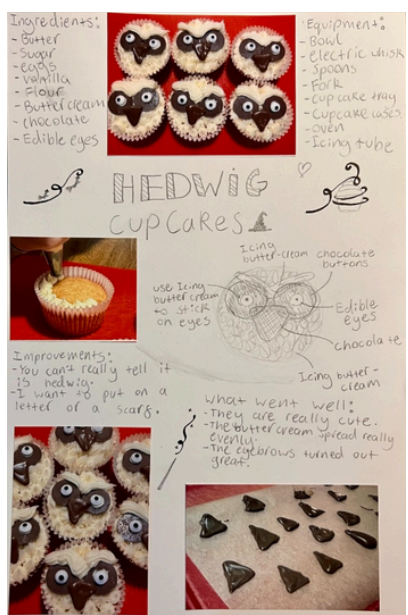 Ingredients:
- Butter
- Sugar
- eggs
- vanilla
- Flour
- Butter cream
- chocolate
- Edible eyes
Equipment:
- Bowl
- electric whisk
- Spoons
- Fork
- cupcake tray
- Cupcake cases
- oven
- Icing tube
HEDWIG
CUPCAKES
Icing
butter-cream
chocolate
buttons
use Icing
butter cream
to stick
on eyes
Edible
eyes
chocolate
Icing butter-
cream
Improvements:
- You can't really tell it
is hedwig.
- I want to put on a
letter or a scarf.
What went well:
- They are really cute.
- The butter cream spread really
evenly.
- The eyebrows turned out
great.